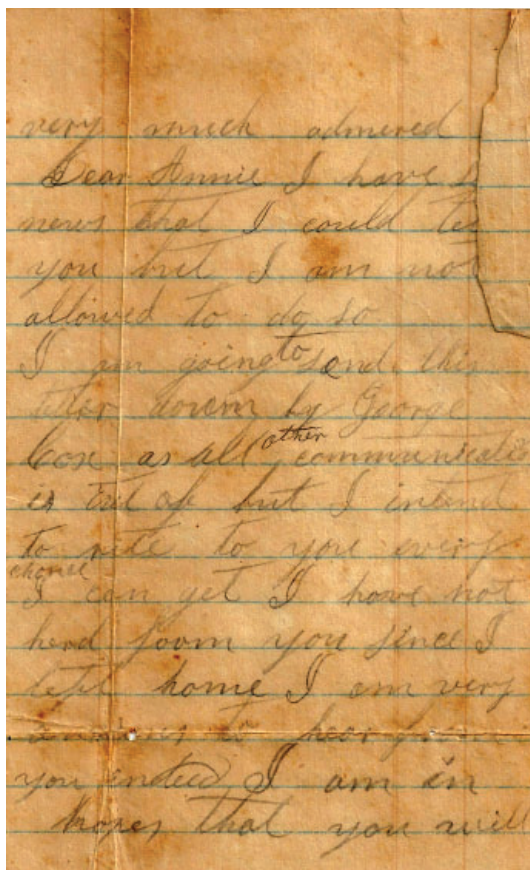 very much admired
Dear Annie I have
news that I could
you but I am not
allowed to do so
I am going to send this
down by George
Cox as all other communicatio
is cut of but I intend
to rite to you every
chance
I can get I have not
herd from you since I
left home I am very
to hear from
you indeed I am in
hopes that you will